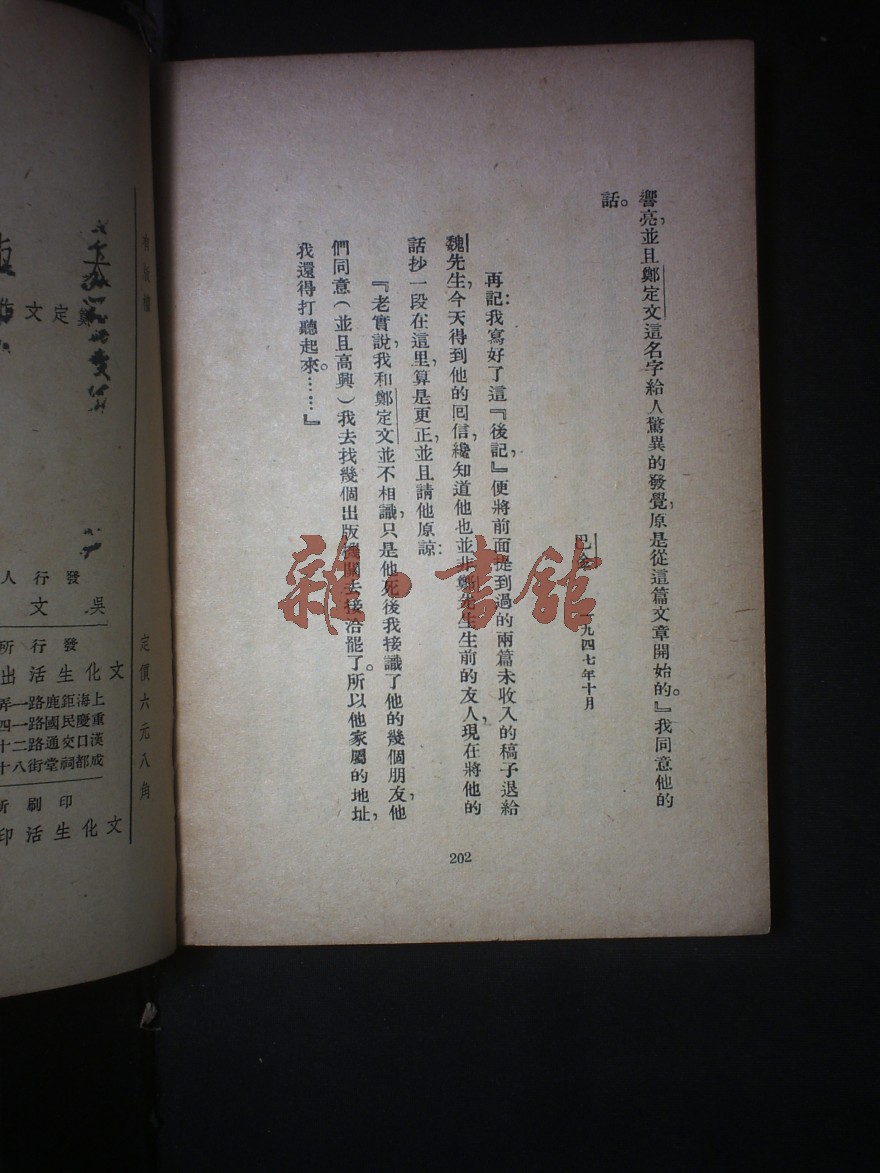 響亮,並且鄭定文這名字給人驚異的發覺,原是從這篇文章開始的。』我同意他的
話。
巴金 一九四七年十月
再記:我寫好了這『後記,』便將前面提到過的兩篇未收入的稿子退給
魏先生,今天得到他的囘信,纔知道他也並非鄭先生生前的友人,現在將他的
話抄一段在這里,算是更正,並且請他原諒:
『老實說,我和鄭定文並不相識,只是他死後我接識了他的幾個朋友,他
們同意(並且高興)我去找幾個出版機關去接洽罷了。所以他家屬的地址,
我還得打聽起來。……』
202
雜·書館
定價六元八角
鄭定文
發行人
吳文
發行所
文化生活出
上海鉅鹿路一弄
重慶民國路一四
漢口交通路二十
成都祠堂街八十
印刷所
文化生活印